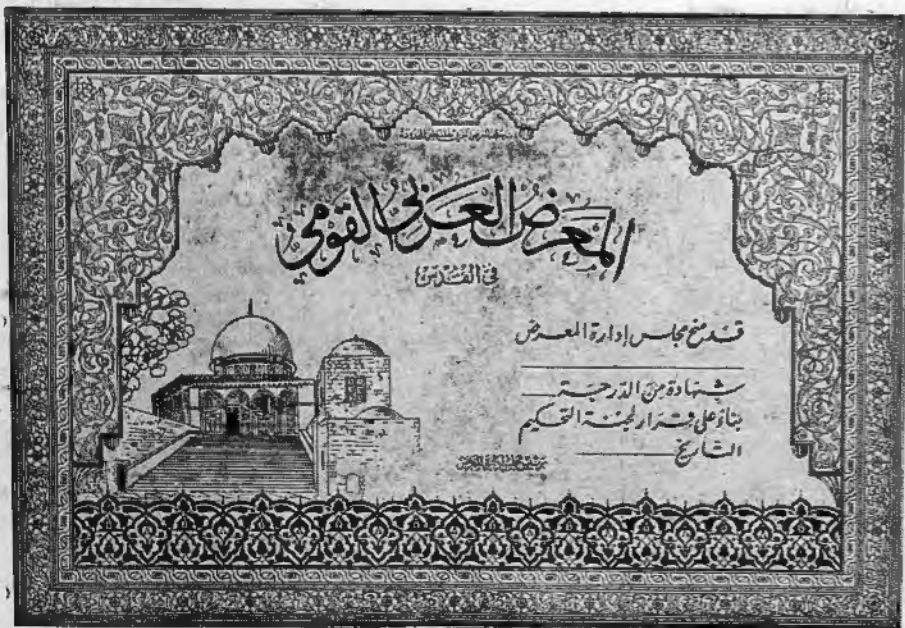 المعرض العربي القومي
في القدس
قد منح مجلس إدارة المعرض
شهادة من الدرجة
بناء على قرار لجنة التحكيم
التاريخ